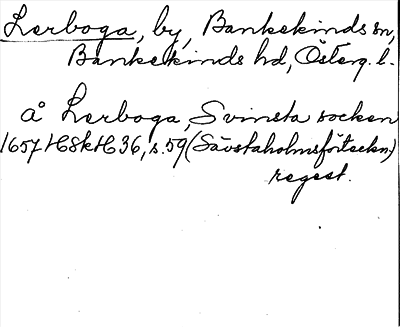 Lerboga, by, Bankekinds sn,
Bankekinds hd, Österg. l.
å Lerboga, Svinsta socken
1657 HSkH 36, s. 59 (Sävstaholmsförteckn.)
regest.